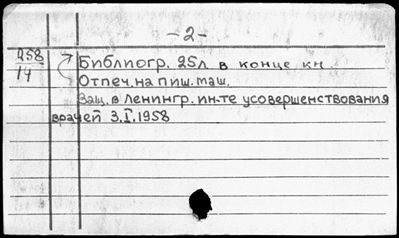 -2-
258
14
Библиогр. 25л. в конце кн.
Отпеч. на пиш. маш.
Защ. в Ленингр. ин-те усовершенствования
врачей 3.I.1958